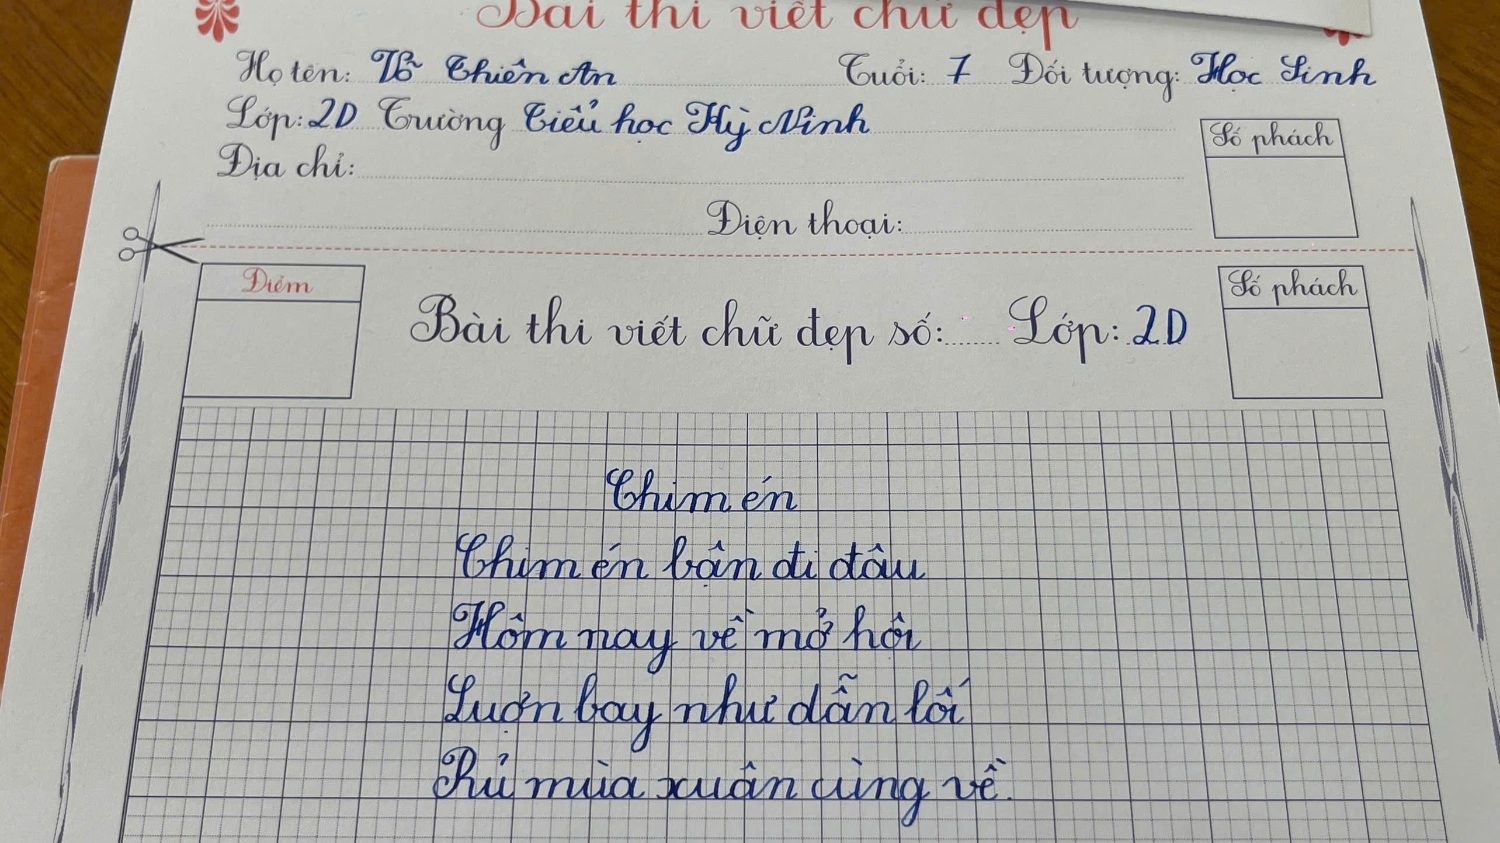 Bài thi viết chữ đẹp
Họ tên: Võ Thiên Ân Tuổi: 7 Đối tượng: Học Sinh
Lớp: 2D Trường Tiểu học Hỷ Ninh
Địa chỉ:
Số phách
Điện thoại:
Điểm
Bài thi viết chữ đẹp số: Lớp: 2D
Số phách
Chim én
Chim én bận đi đâu
Hôm nay về mở hội
Lượn bay như dẫn lối
Rủ mùa xuân cùng về.